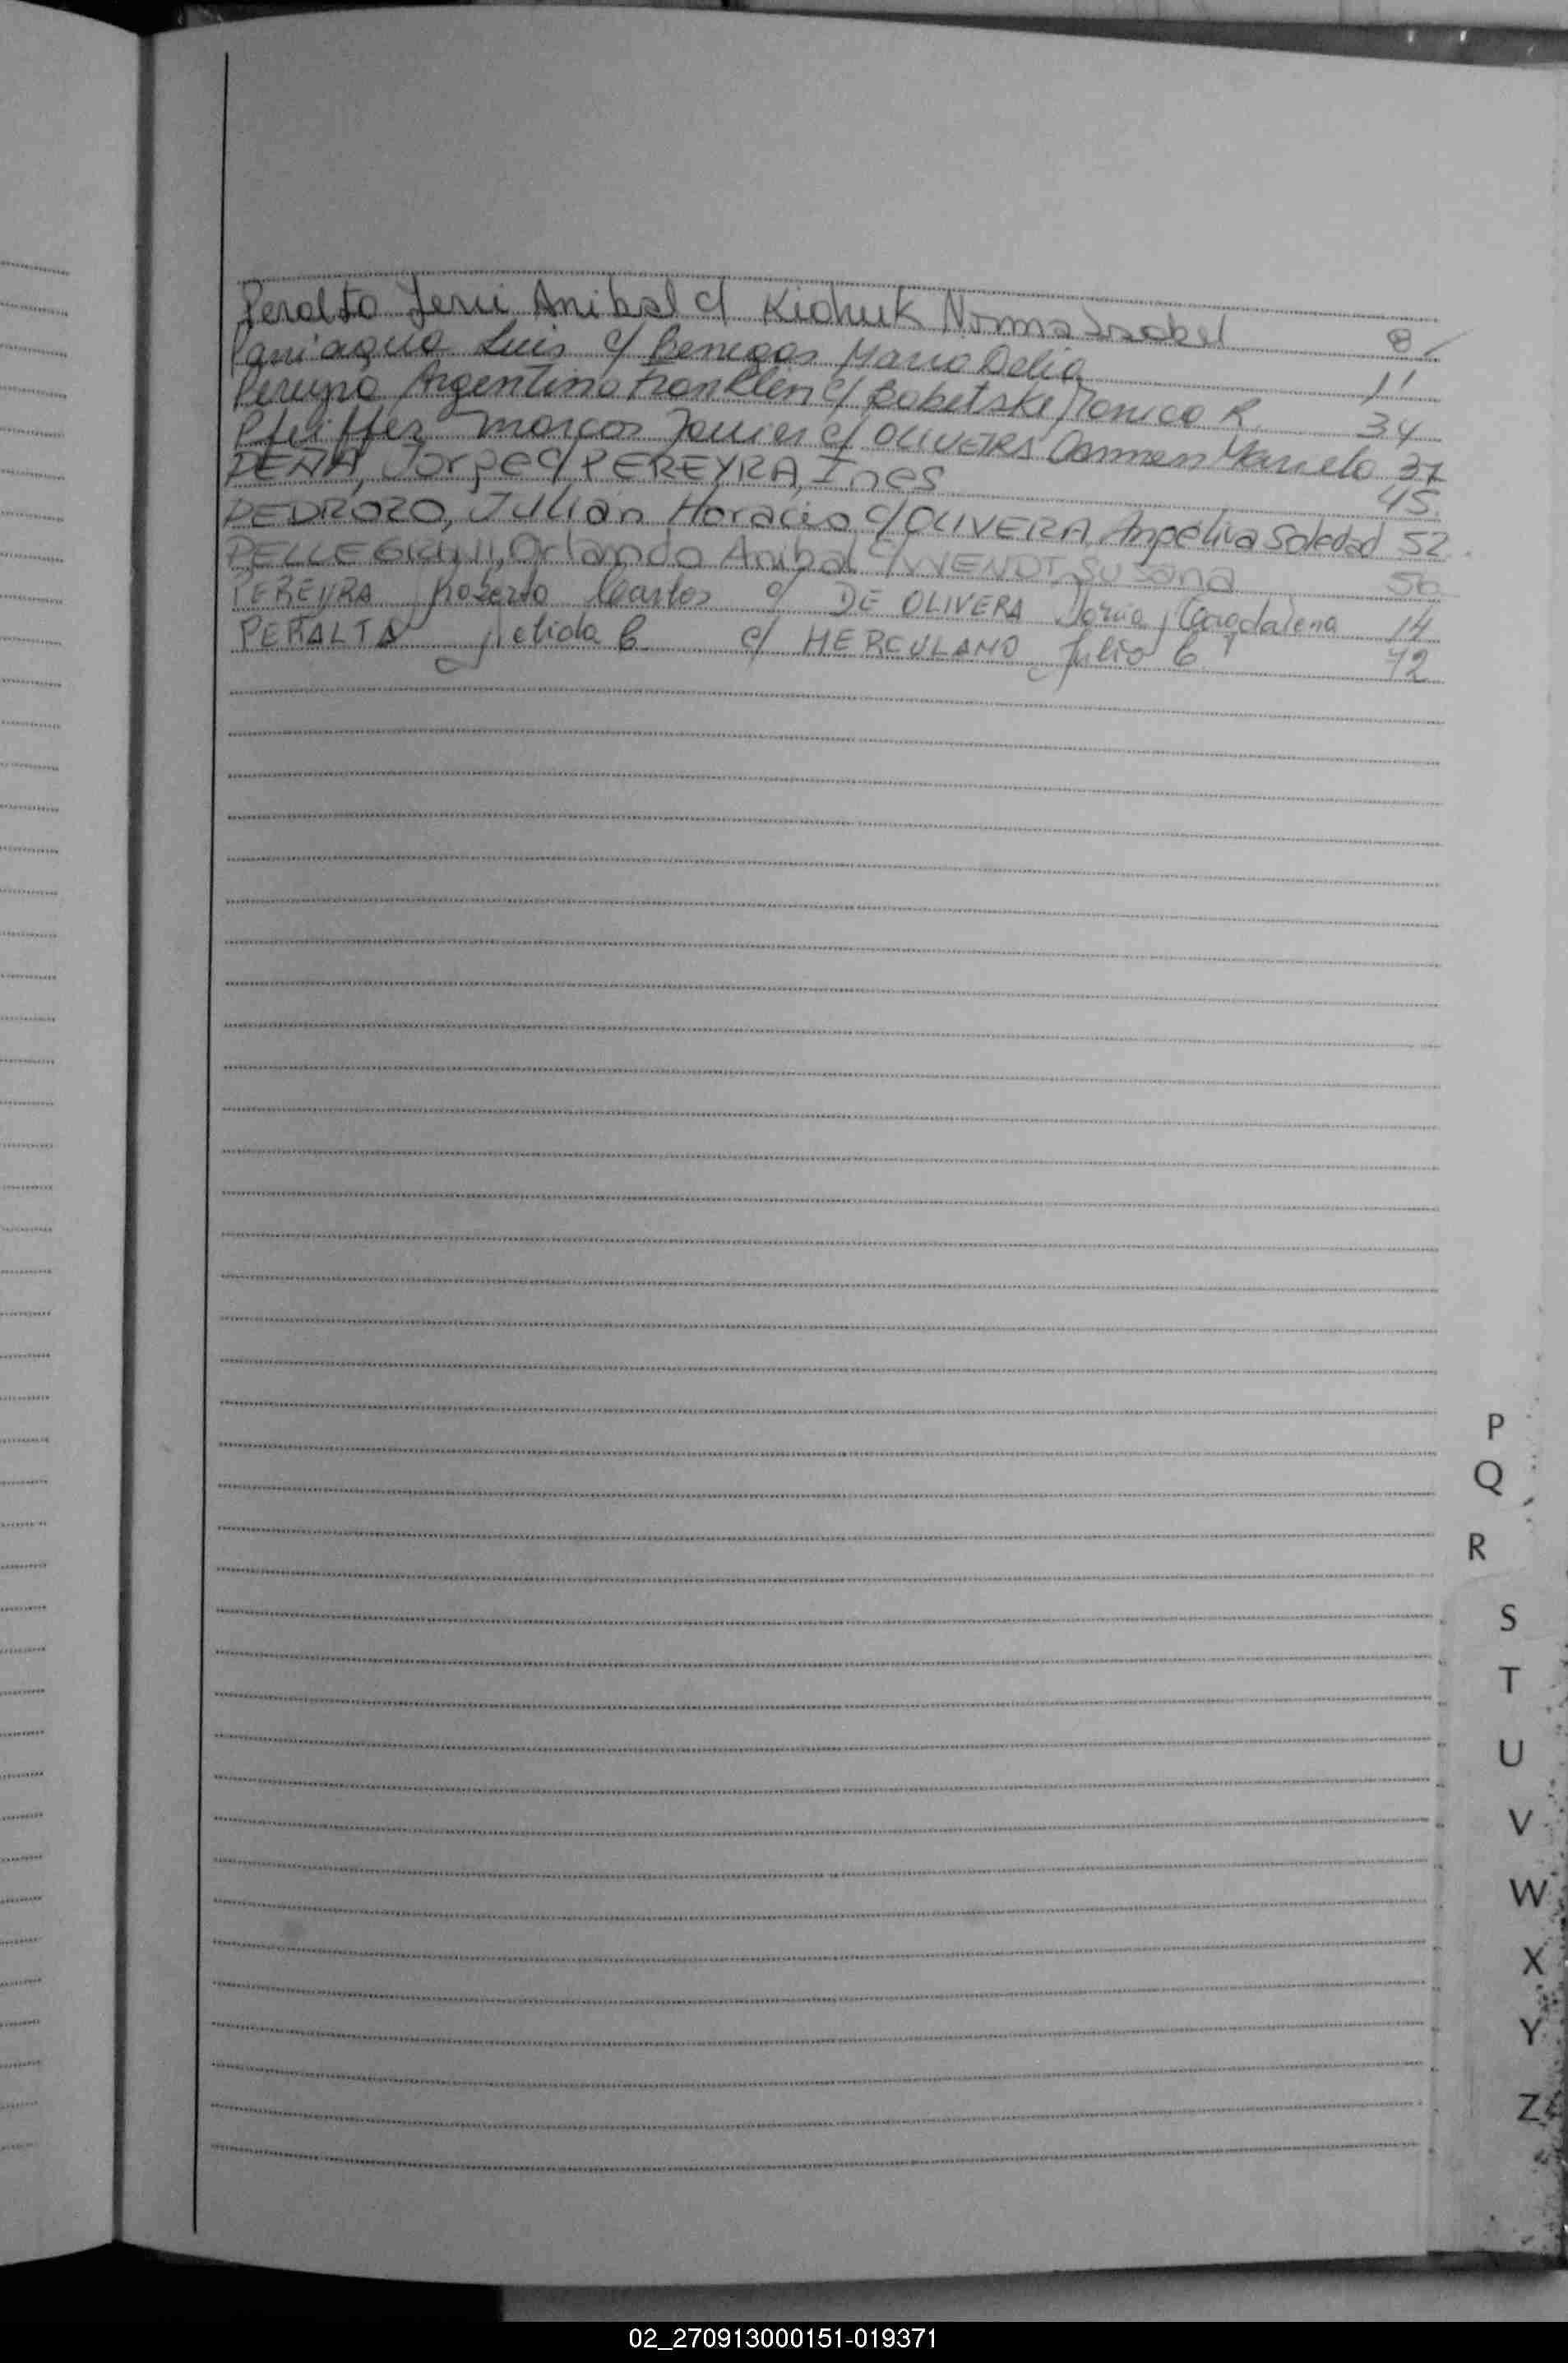 Peralta Jesus Anibal c/ Kichuk Norma Isabel 8
Paniagua Luis c/ Benegas Maria Delia 11
Pereyra Argentino Franklin c/ Bobetski Monica R. 34
Pfeiffer Marcos Javier c/ OLIVEIRA Carmen Marcela 37
PEÑA, Jorge c/ PEREYRA, Ines 45
PEDROZO, Julián Horacio c/ OLIVERA Angélica Soledad 52
PELLEGRINI, Orlando Anibal c/ WENDT, Susana 56
PEREYRA Roberto Carlos c/ DE OLIVERA Magdalena 14
PERALTA c/ HERCULANO Julio C. 72
P
Q
R
S
T
U
V
W
X
Y
Z
02_270913000151-019371